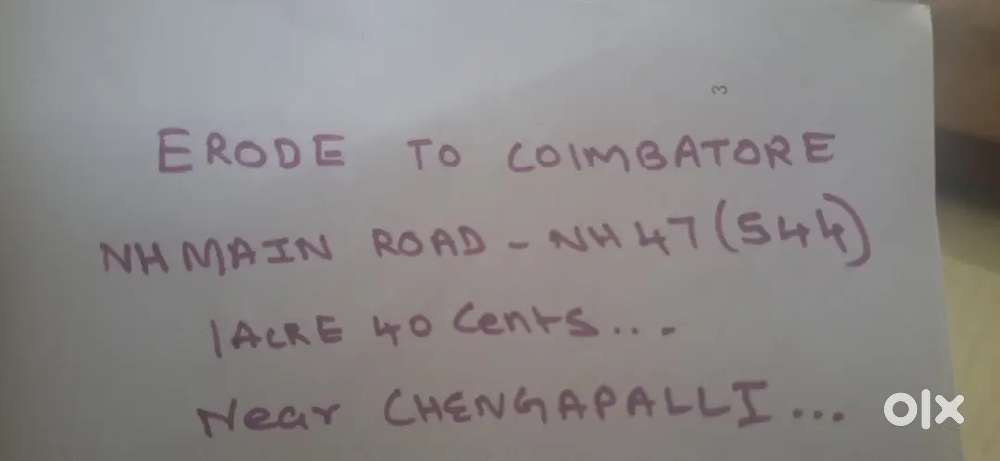 3
ERODE TO COIMBATORE
NH MAIN ROAD - NH 47 (544)
1 ACRE 40 Cents...
Near CHENGAPALLI...
olx